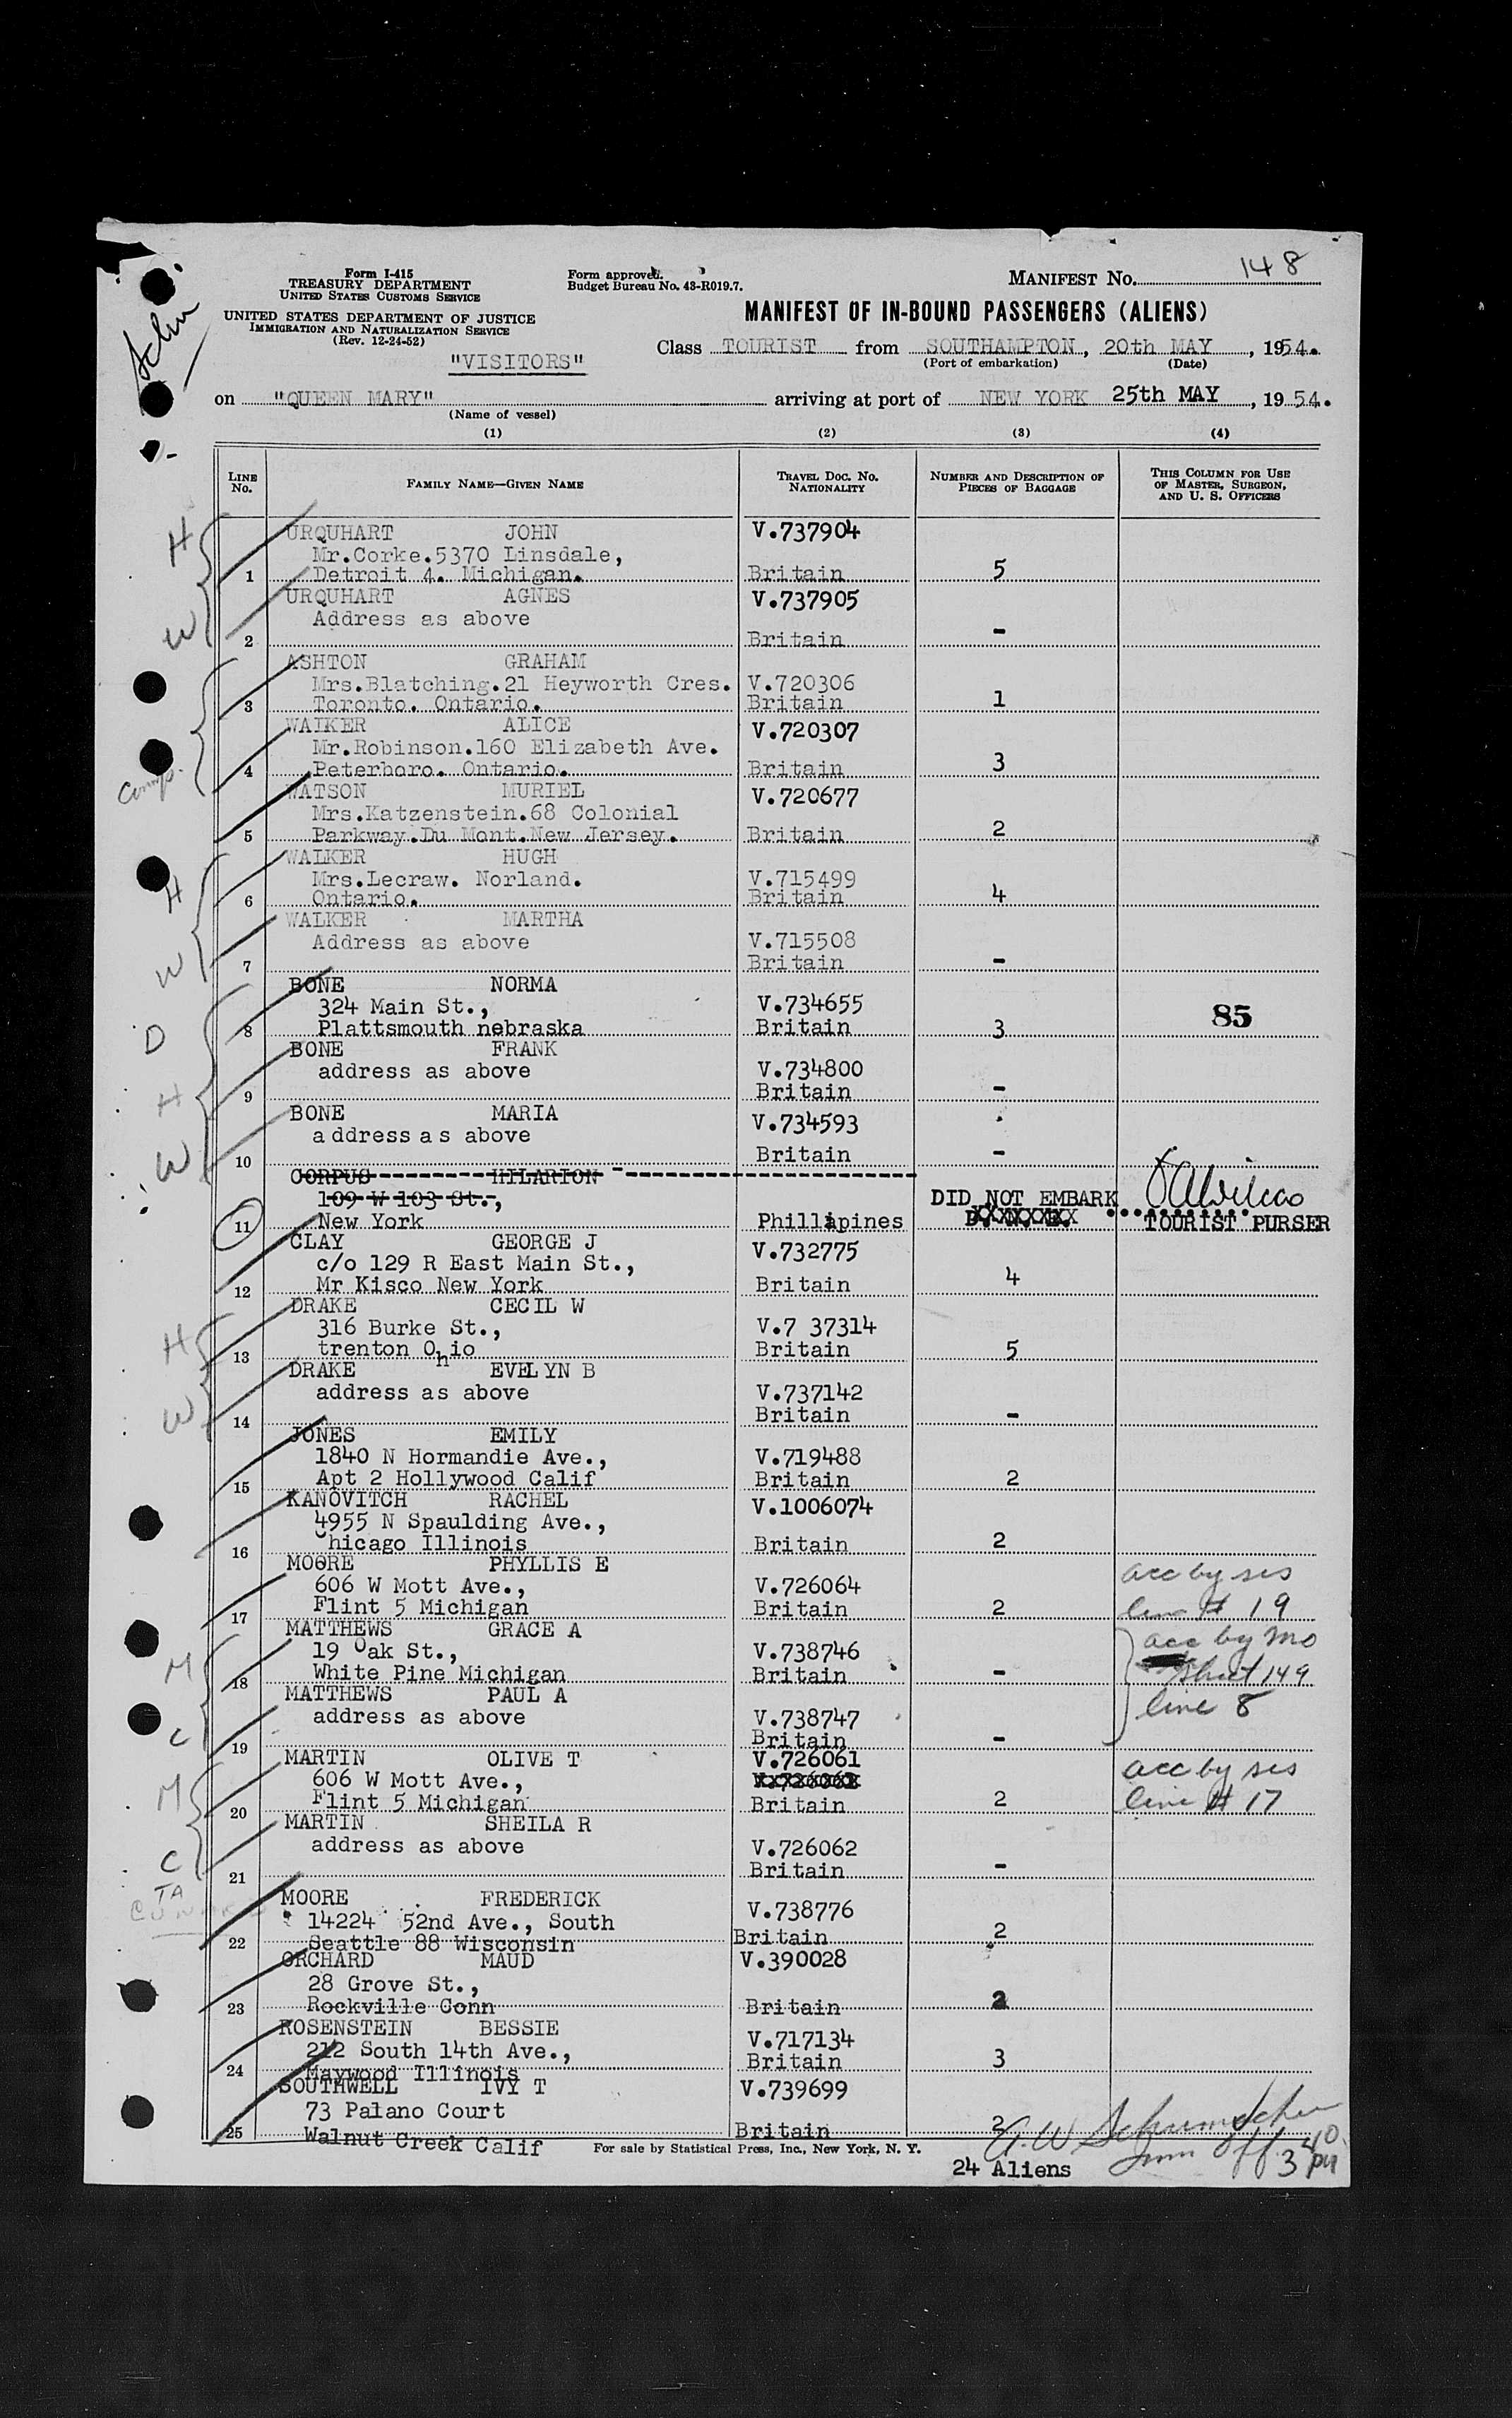 Form I-415
TREASURY DEPARTMENT
UNITED STATES CUSTOMS SERVICE
UNITED STATES DEPARTMENT OF JUSTICE
IMMIGRATION AND NATURALIZATION SERVICE
(Rev. 12-24-52)
"VISITORS"
Form approved.
Budget Bureau No. 43-R019.7.
MANIFEST No. 148
MANIFEST OF IN-BOUND PASSENGERS (ALIENS)
Class TOURIST from SOUTHAMPTON, 20th MAY, 1954.
(Port of embarkation) (Date)
on "QUEEN MARY" arriving at port of NEW YORK 25th MAY, 1954.
(Name of vessel)
(1) (2) (3) (4)
LINE No. FAMILY NAME—GIVEN NAME TRAVEL DOC. No. NATIONALITY NUMBER AND DESCRIPTION OF PIECES OF BAGGAGE THIS COLUMN FOR USE OF MASTER, SURGEON, AND U. S. OFFICERS
H URQUHART JOHN V.737904
Mr.Corke.5370 Linsdale,
1 Detroit 4. Michigan. Britain 5
URQUHART AGNES V.737905
W Address as above
2 Britain -
ASHTON GRAHAM
Mrs.Blatching.21 Heyworth Cres. V.720306
3 Toronto. Ontario. Britain 1
WALKER ALICE V.720307
Mr.Robinson.160 Elizabeth Ave.
Comp. 4 Peterboro. Ontario. Britain 3
WATSON MURIEL V.720677
Mrs.Katzenstein.68 Colonial
5 Parkway.Du Mont.New Jersey. Britain 2
WALKER HUGH
Mrs.Lecraw. Norland. V.715499
H 6 Ontario. Britain 4
WALKER MARTHA
Address as above V.715508
W 7 Britain -
BONE NORMA
324 Main St., V.734655
D 8 Plattsmouth nebraska Britain 3 85
BONE FRANK
address as above V.734800
H 9 Britain -
BONE MARIA V.734593
address as above
W 10 Britain -
CORPUS HILARION
109 W 103 St., DID NOT EMBARK
11 New York Phillipines D. N. E. TOURIST PURSER
CLAY GEORGE J V.732775
c/o 129 R East Main St.,
12 Mr Kisco New York Britain 4
DRAKE CECIL W
316 Burke St., V.7 37314
H 13 trenton Ohio Britain 5
DRAKE EVELYN B
address as above V.737142
W 14 Britain -
JONES EMILY
1840 N Hormandie Ave., V.719488
15 Apt 2 Hollywood Calif Britain 2
KANOVITCH RACHEL V.1006074
4955 N Spaulding Ave.,
16 Chicago Illinois Britain 2
MOORE PHYLLIS E acc by sis
606 W Mott Ave., V.726064
17 Flint 5 Michigan Britain 2 line # 19
MATTHEWS GRACE A acc by Mo
19 Oak St., V.738746
M 18 White Pine Michigan Britain - sheet 149
MATTHEWS PAUL A line 8
address as above V.738747
C 19 Britain -
MARTIN OLIVE T V.726061 acc by sis
606 W Mott Ave.,
M 20 Flint 5 Michigan Britain 2 line # 17
MARTIN SHEILA R
address as above V.726062
C 21 Britain -
TA
MOORE FREDERICK V.738776
14224 52nd Ave., South
22 Seattle 88 Wisconsin Britain 2
ORCHARD MAUD V.390028
28 Grove St.,
23 Rockville Conn Britain 2
ROSENSTEIN BESSIE V.717134
212 South 14th Ave.,
24 Maywood Illinois Britain 3
SOUTHWELL IVY T V.739699
73 Palano Court
25 Walnut Creek Calif Britain 2
For sale by Statistical Press, Inc., New York, N. Y.
G.W Schumacher
Imm Off. 3 40 PM
24 Aliens